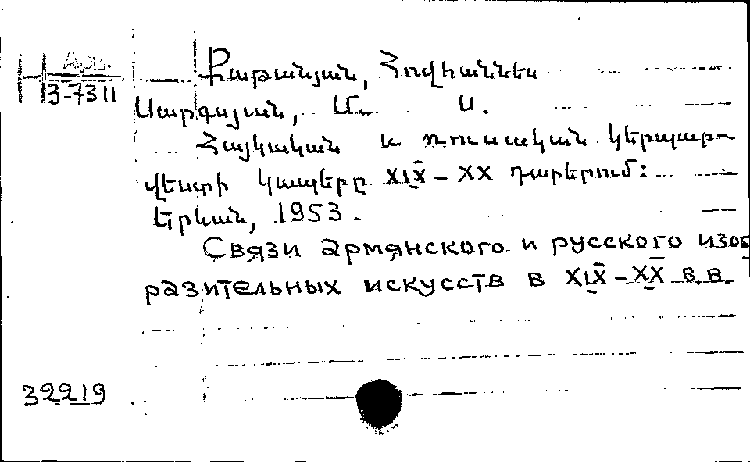 Арм.
3-7311
Քաթանյան, Հովհաննես
Սարգսյան, Մ. Ս.
Հայկական և ռուսական կերպար-
վեստի կապերը XIX – XX դարերում:
Երևան, 1953.
Связи армянского и русского изоб
разительных искусств в XIX – XX в.в.
39919